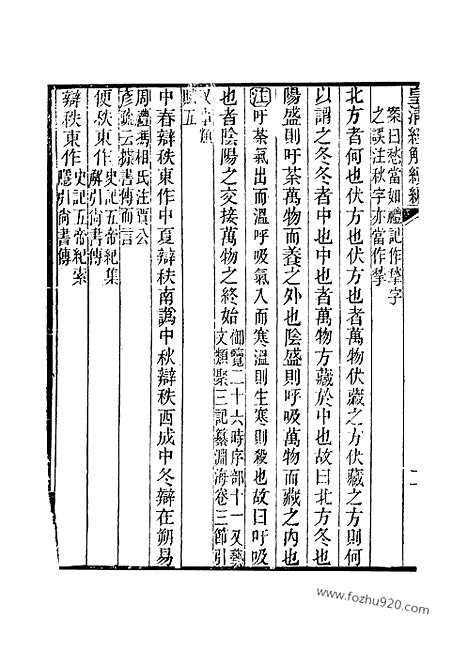 皇清經解續編
案曰愁當如禮記作揫字
之誤注秋字亦當作揫
北方者何也伏方也伏方也者萬物伏藏之方伏藏之方則何
以謂之冬冬者中也中也者萬物方藏於中也故曰北方冬也
陽盛則吁荼萬物而養之外也陰盛則呼吸萬物而藏之内也
注吁荼氣出而溫呼吸氣入而寒溫則生寒則殺也故曰吁吸
也者陰陽之交接萬物之終始御覽二十六時序部十一又藝
文類聚三記纂淵海卷三節引
又事類
賦五
中春辯秩東作中夏辯秩南譌中秋辯秩西成中冬辯在朔易
周禮馮相氏注賈公
彥疏云據書傳而言
便秩東作史記五帝紀集
解引尙書傳
辯秩東作史記五帝紀索
隱引尙書傳
www.fozhu920.com